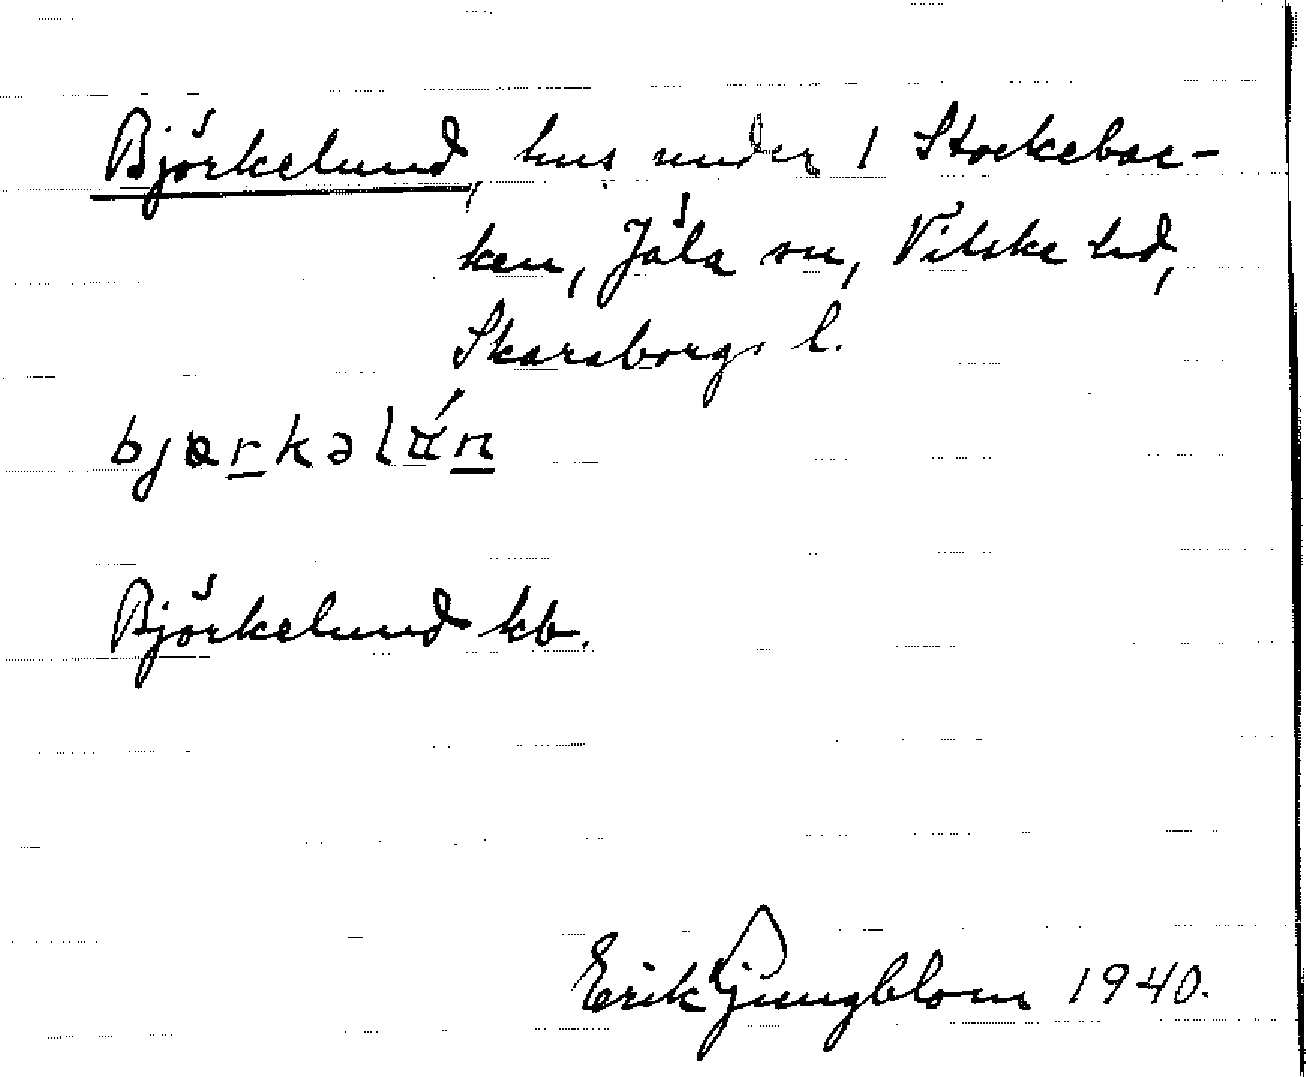 Björkelund, hus under 1 Stockebac-
ken, Jäla sn, Vilske hd,
Skaraborgs l.
bjærkəlún
Björkelund kb.
Erik Ljungblom 1940.